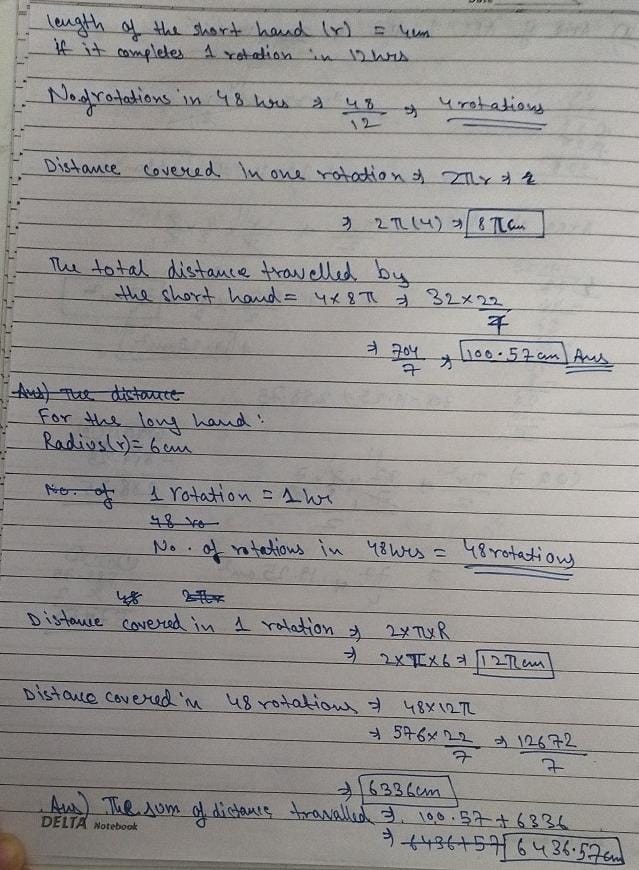 length of the short hand (r) = 4cm
if it completes 1 rotation in 12 hrs
No. of rotations in 48 hrs ⇒ 48/12 ⇒ 4 rotations
Distance covered in one rotation ⇒ 2πr ⇒ 2
⇒ 2π(4) ⇒ 8πcm
The total distance travelled by
the short hand = 4×8π ⇒ 32×22/7
⇒ 704/7 ⇒ 100.57cm Ans
Ans) The distance
For the long hand :
Radius(r) = 6cm
No. of 1 rotation = 1 hr
48 ro
No. of rotations in 48hrs = 48 rotations
48 2πr
Distance covered in 1 rotation ⇒ 2×π×R
⇒ 2×π×6 ⇒ 12πcm
Distance covered in 48 rotations ⇒ 48×12π
⇒ 576×22/7 ⇒ 12672/7
⇒ 6336cm
Ans) The sum of distance travalled ⇒ 100.57 + 6336
DELTA Notebook
⇒ 6436+57 6436.57cm